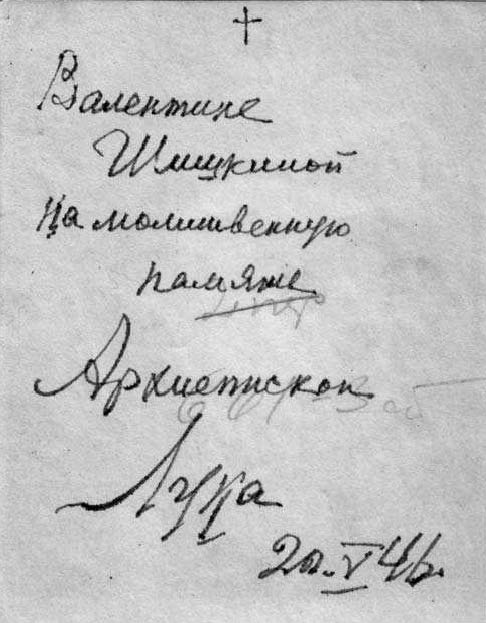 Валентине
Шишкиной
на молитвенную
память
Архиепископ
Лука
20.V 46.